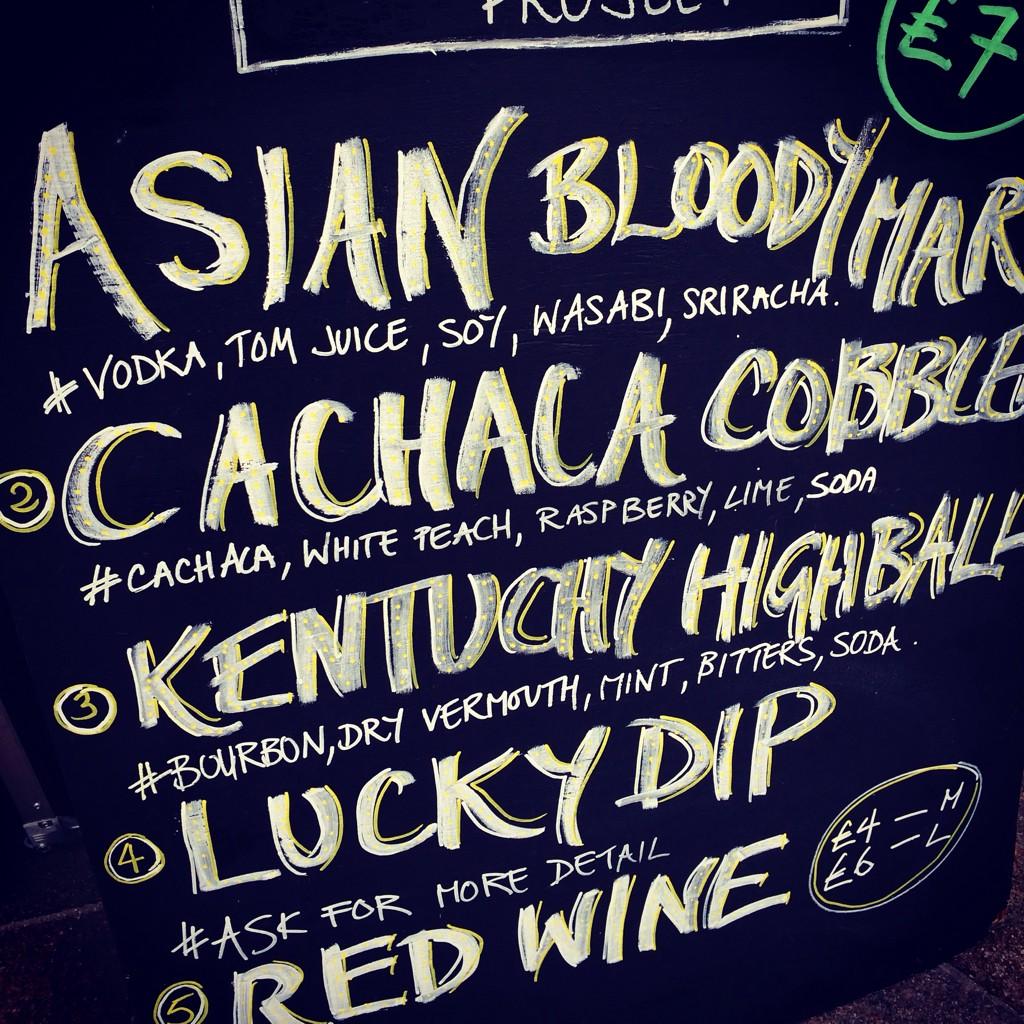 £7
ASIAN BLOODY MAR
#VODKA, TOM JUICE, SOY, WASABI, SRIRACHA.
② CACHACA COBBLE
#CACHACA, WHITE PEACH, RASPBERRY, LIME, SODA
③ KENTUCHY HIGHBALL
#BOURBON, DRY VERMOUTH, MINT, BITTERS, SODA.
④ LUCKY DIP
#ASK FOR MORE DETAIL
⑤ RED WINE
£4 — M
£6 — L